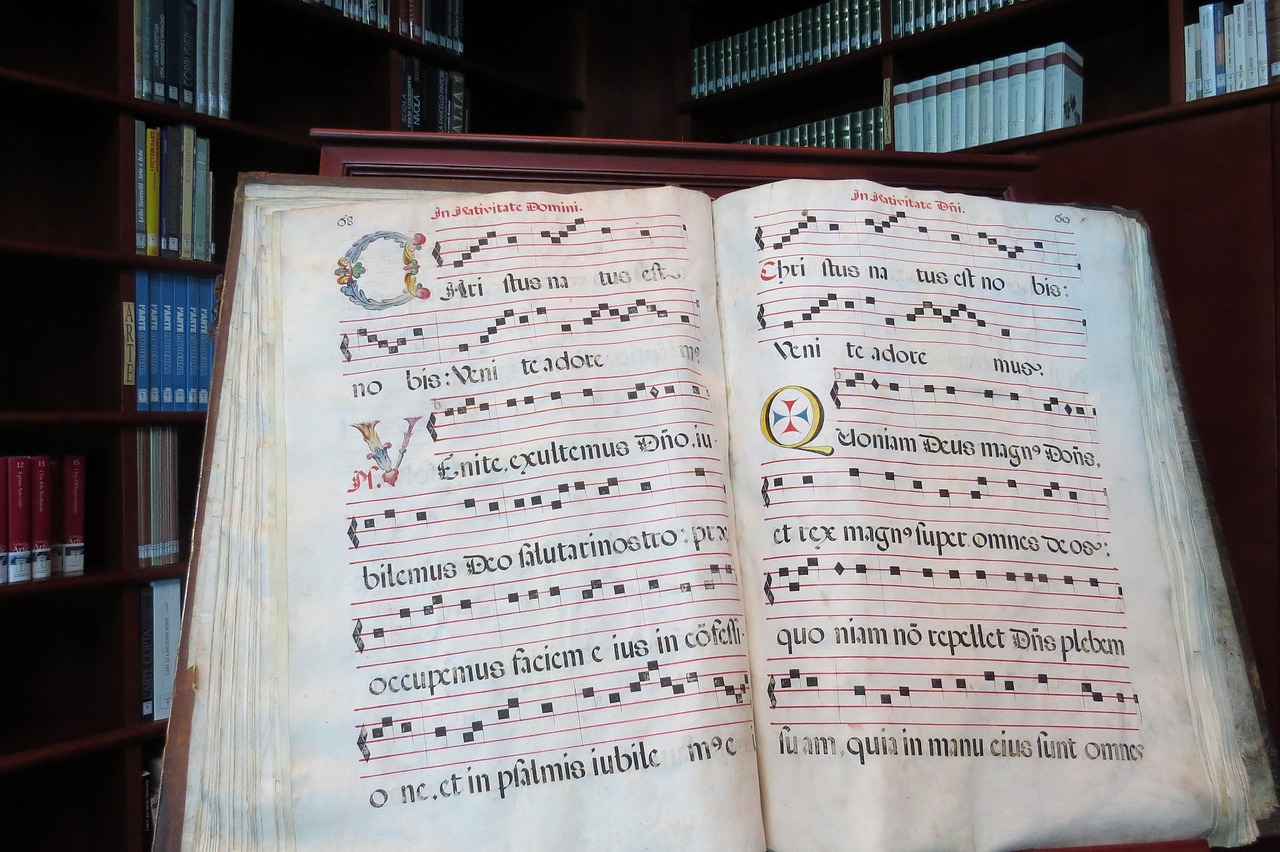 68
In Nativitate Domini.
CHri stus na tus est
no bis: Veni te adore m⁹
Ps. VEnite, exultemus Dño. iu-
bilemus Deo salutari nostro: præ
occupemus faciem e ius in cõfessi-
o ne, et in psalmis iubile m⁹ e
In Nativitate Dñi.
Chri stus na tus est no bis:
Veni te adore mus.
Quoniam Deus magn⁹ Doñs,
et rex magn⁹ super omnes deos:
quo niam nõ repellet Dñs plebem
su am, quia in manu eius sunt omnes
ARTE
L'ARTE
L'ARTE
L'ARTE
L'ARTE